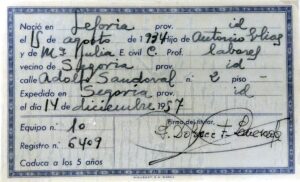 Nació en Segovia prov. id
el 15 de agosto de 1934 hijo de Antonio Elías
y de Mª Julia E. civil C. Prof. labores
vecino de Segovia prov. id
calle Adolfo Sandoval n.º 2 piso -
Expedido en Segovia id
el día 14 diciembre 1957
Firma del titular,
Equipo n.º 10
Registro n.º 6409
Caduca a los 5 años